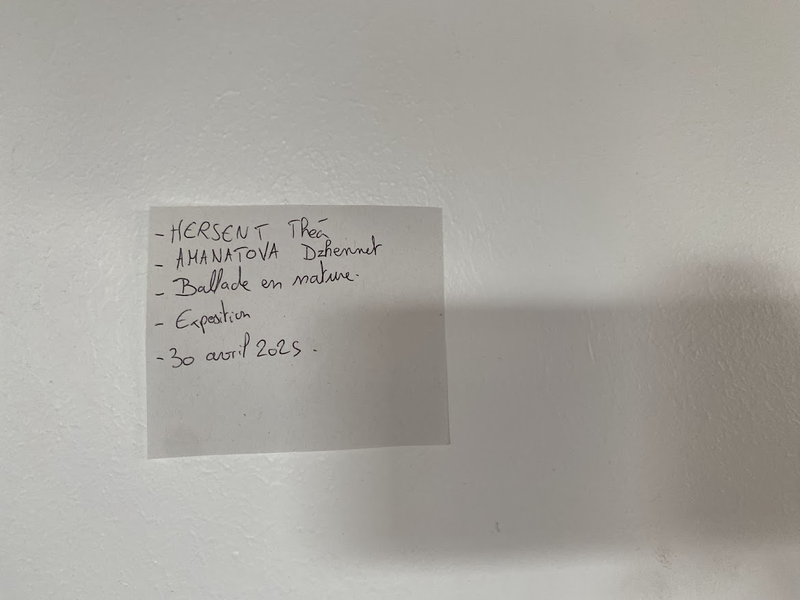 - HERSENT Théa
- AMANATOVA Dzhennet
- Ballade en nature.
- Exposition
- 30 avril 2025.